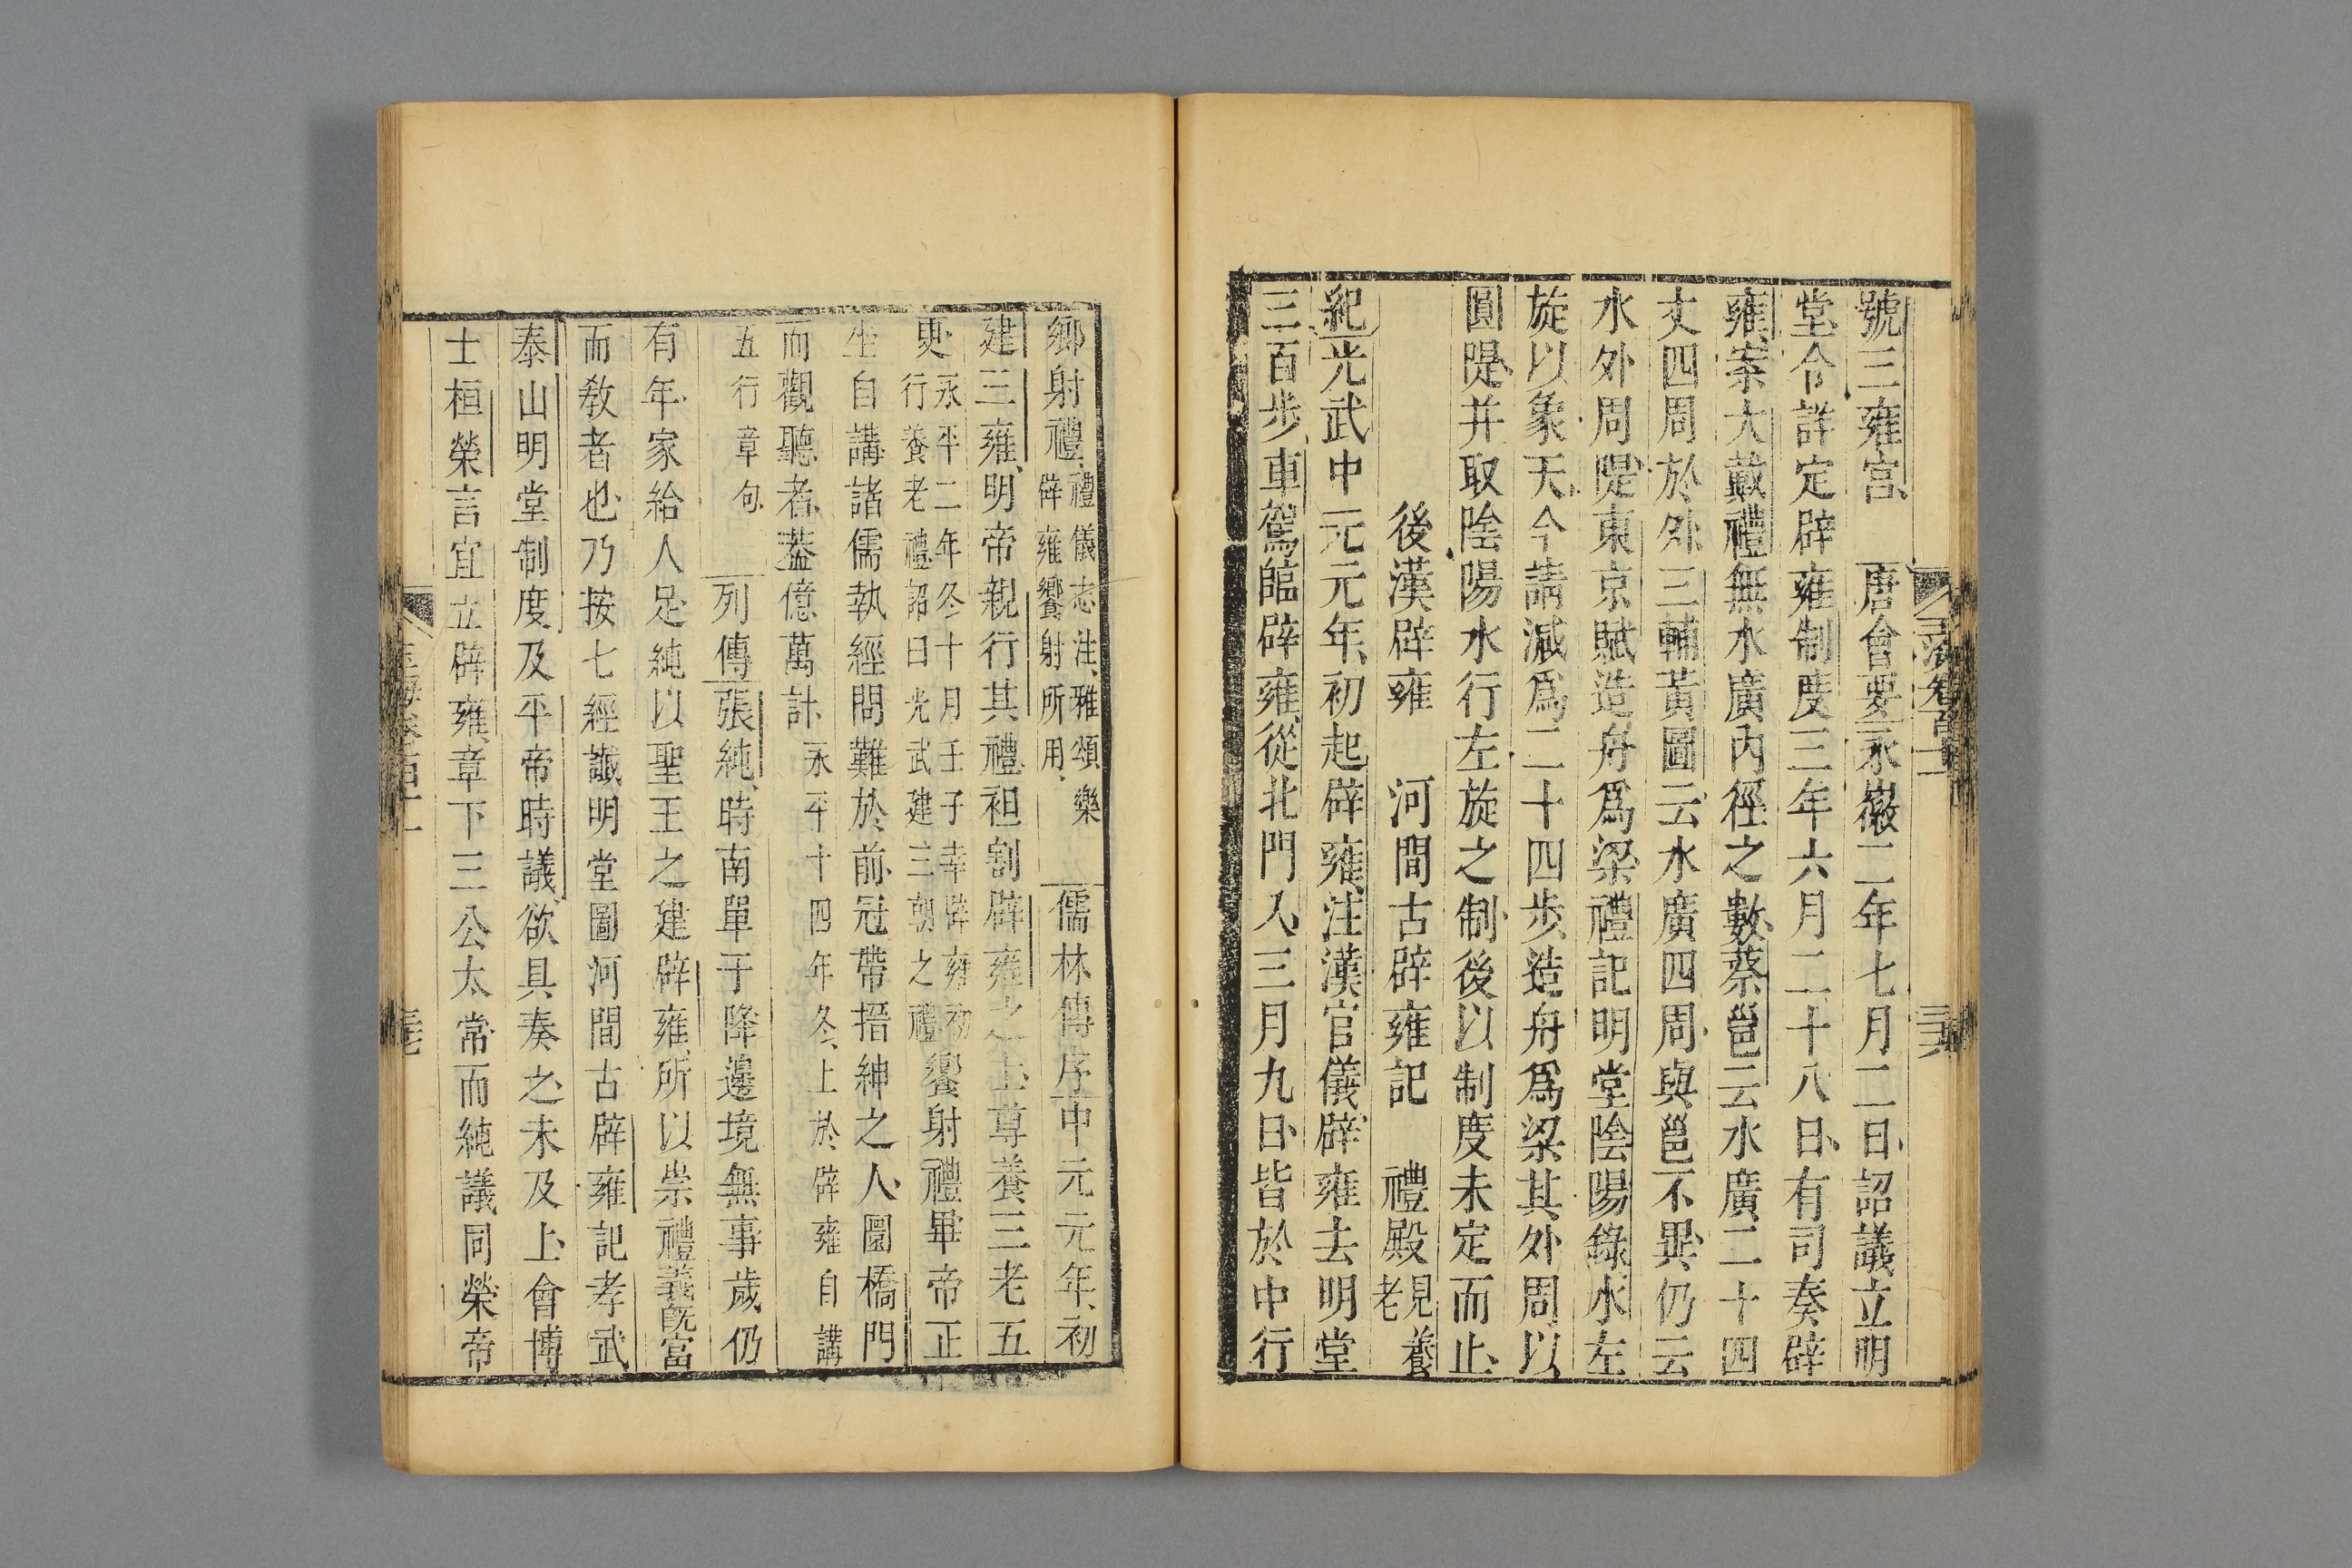 號三雍宮　唐會要永徽二年七月二日詔議立明
堂令詳定辟雍制度三年六月二十八日有司奏辟
雍案大戴禮無水廣內徑之數蔡邕云水廣二十四
丈四周於外三輔黃圖云水廣四周與邕不異仍云
水外周隄東京賦造舟爲梁禮記明堂陰陽錄水左
旋以象天今請減爲二十四步造舟爲梁其外周以
圓隄并取陰陽水行左旋之制後以制度未定而止
後漢辟雍　河間古辟雍記　禮殿見養老
紀光武中元元年初起辟雍注漢官儀辟雍去明堂
三百步車駕臨辟雍從北門入三月九日皆於中行
鄉射禮禮儀志注雅頌樂辟雍饗射所用　儒林傳序中元元年初
建三雍明帝親行其禮袒割辟雍之上尊養三老五
更永平二年冬十月壬子幸辟雍初行養老禮詔曰光武建三朝之禮饗射禮畢帝正
坐自講諸儒執經問難於前冠帶搢紳之人圜橋門
而觀聽者蓋億萬計永平十四年冬上於辟雍自講
五行章句　列傳張純時南單于降邊境無事歲仍
有年家給人足純以聖王之建辟雍所以崇禮義旣富
而敎者也乃按七經讖明堂圖河間古辟雍記孝武
泰山明堂制度及平帝時議欲具奏之未及上會博
士桓榮言宜立辟雍章下三公太常而純議同榮帝